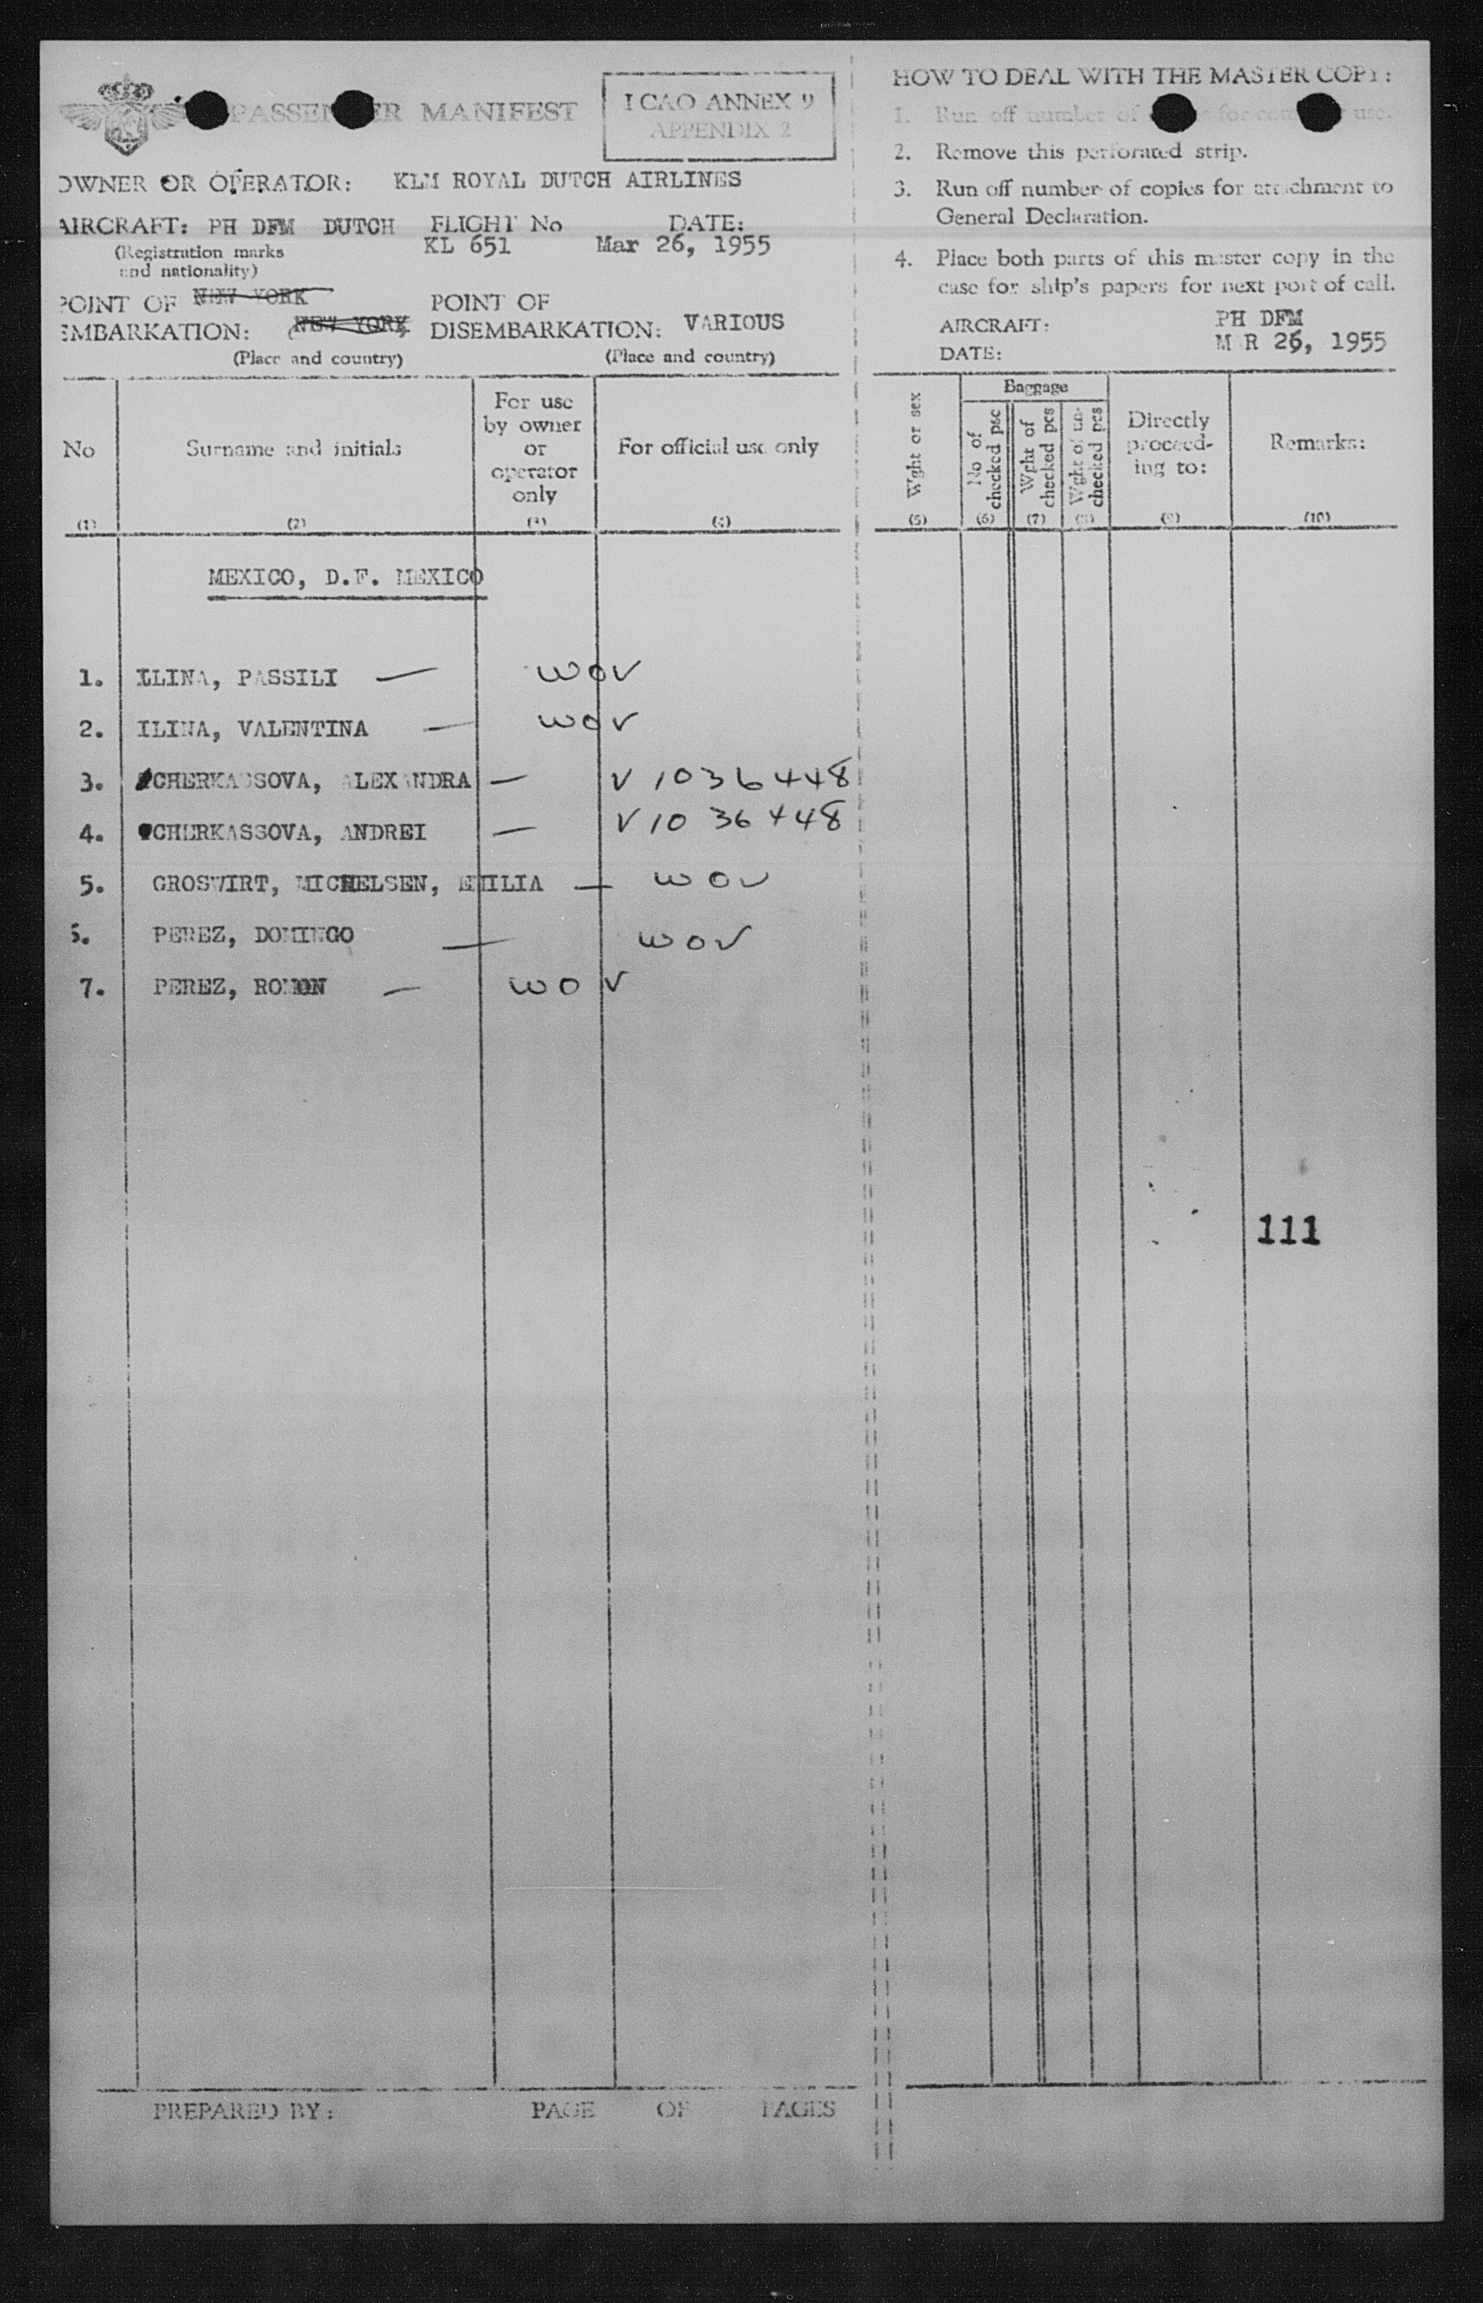 PASSENGER MANIFEST
ICAO ANNEX 9
APPENDIX 2
OWNER OR OPERATOR: KLM ROYAL DUTCH AIRLINES
AIRCRAFT: PH DFM DUTCH FLIGHT No DATE:
(Registration marks KL 651 Mar 26, 1955
and nationality)
POINT OF NEW YORK POINT OF
EMBARKATION: (NEW YORK DISEMBARKATION: VARIOUS
(Place and country) (Place and country)
No
Surname and initials
For use
by owner
or
operator
only
For official use only
(1) (2) (3) (4)
MEXICO, D.F. MEXICO
1. ILINA, PASSILI — WOV
2. ILINA, VALENTINA — WOV
3. CHERKASSOVA, ALEXANDRA — V 1036448
4. CHERKASSOVA, ANDREI — V 1036448
5. GROSWIRT, MICHELSEN, EMILIA — WOV
6. PEREZ, DOMINGO — WOV
7. PEREZ, ROMON — WOV
PREPARED BY: PAGE OF PAGES
HOW TO DEAL WITH THE MASTER COPY:
1. Run off number of for use.
2. Remove this perforated strip.
3. Run off number of copies for attachment to
General Declaration.
4. Place both parts of this master copy in the
case for ship's papers for next port of call.
AIRCRAFT: PH DFM
DATE: MAR 26, 1955
Wght or sex
Baggage
No of
checked psc
Wght of
checked pcs
Wght of un-
checked pcs
Directly
proceed-
ing to:
Remarks:
(5) (6) (7) (8) (9) (10)
111